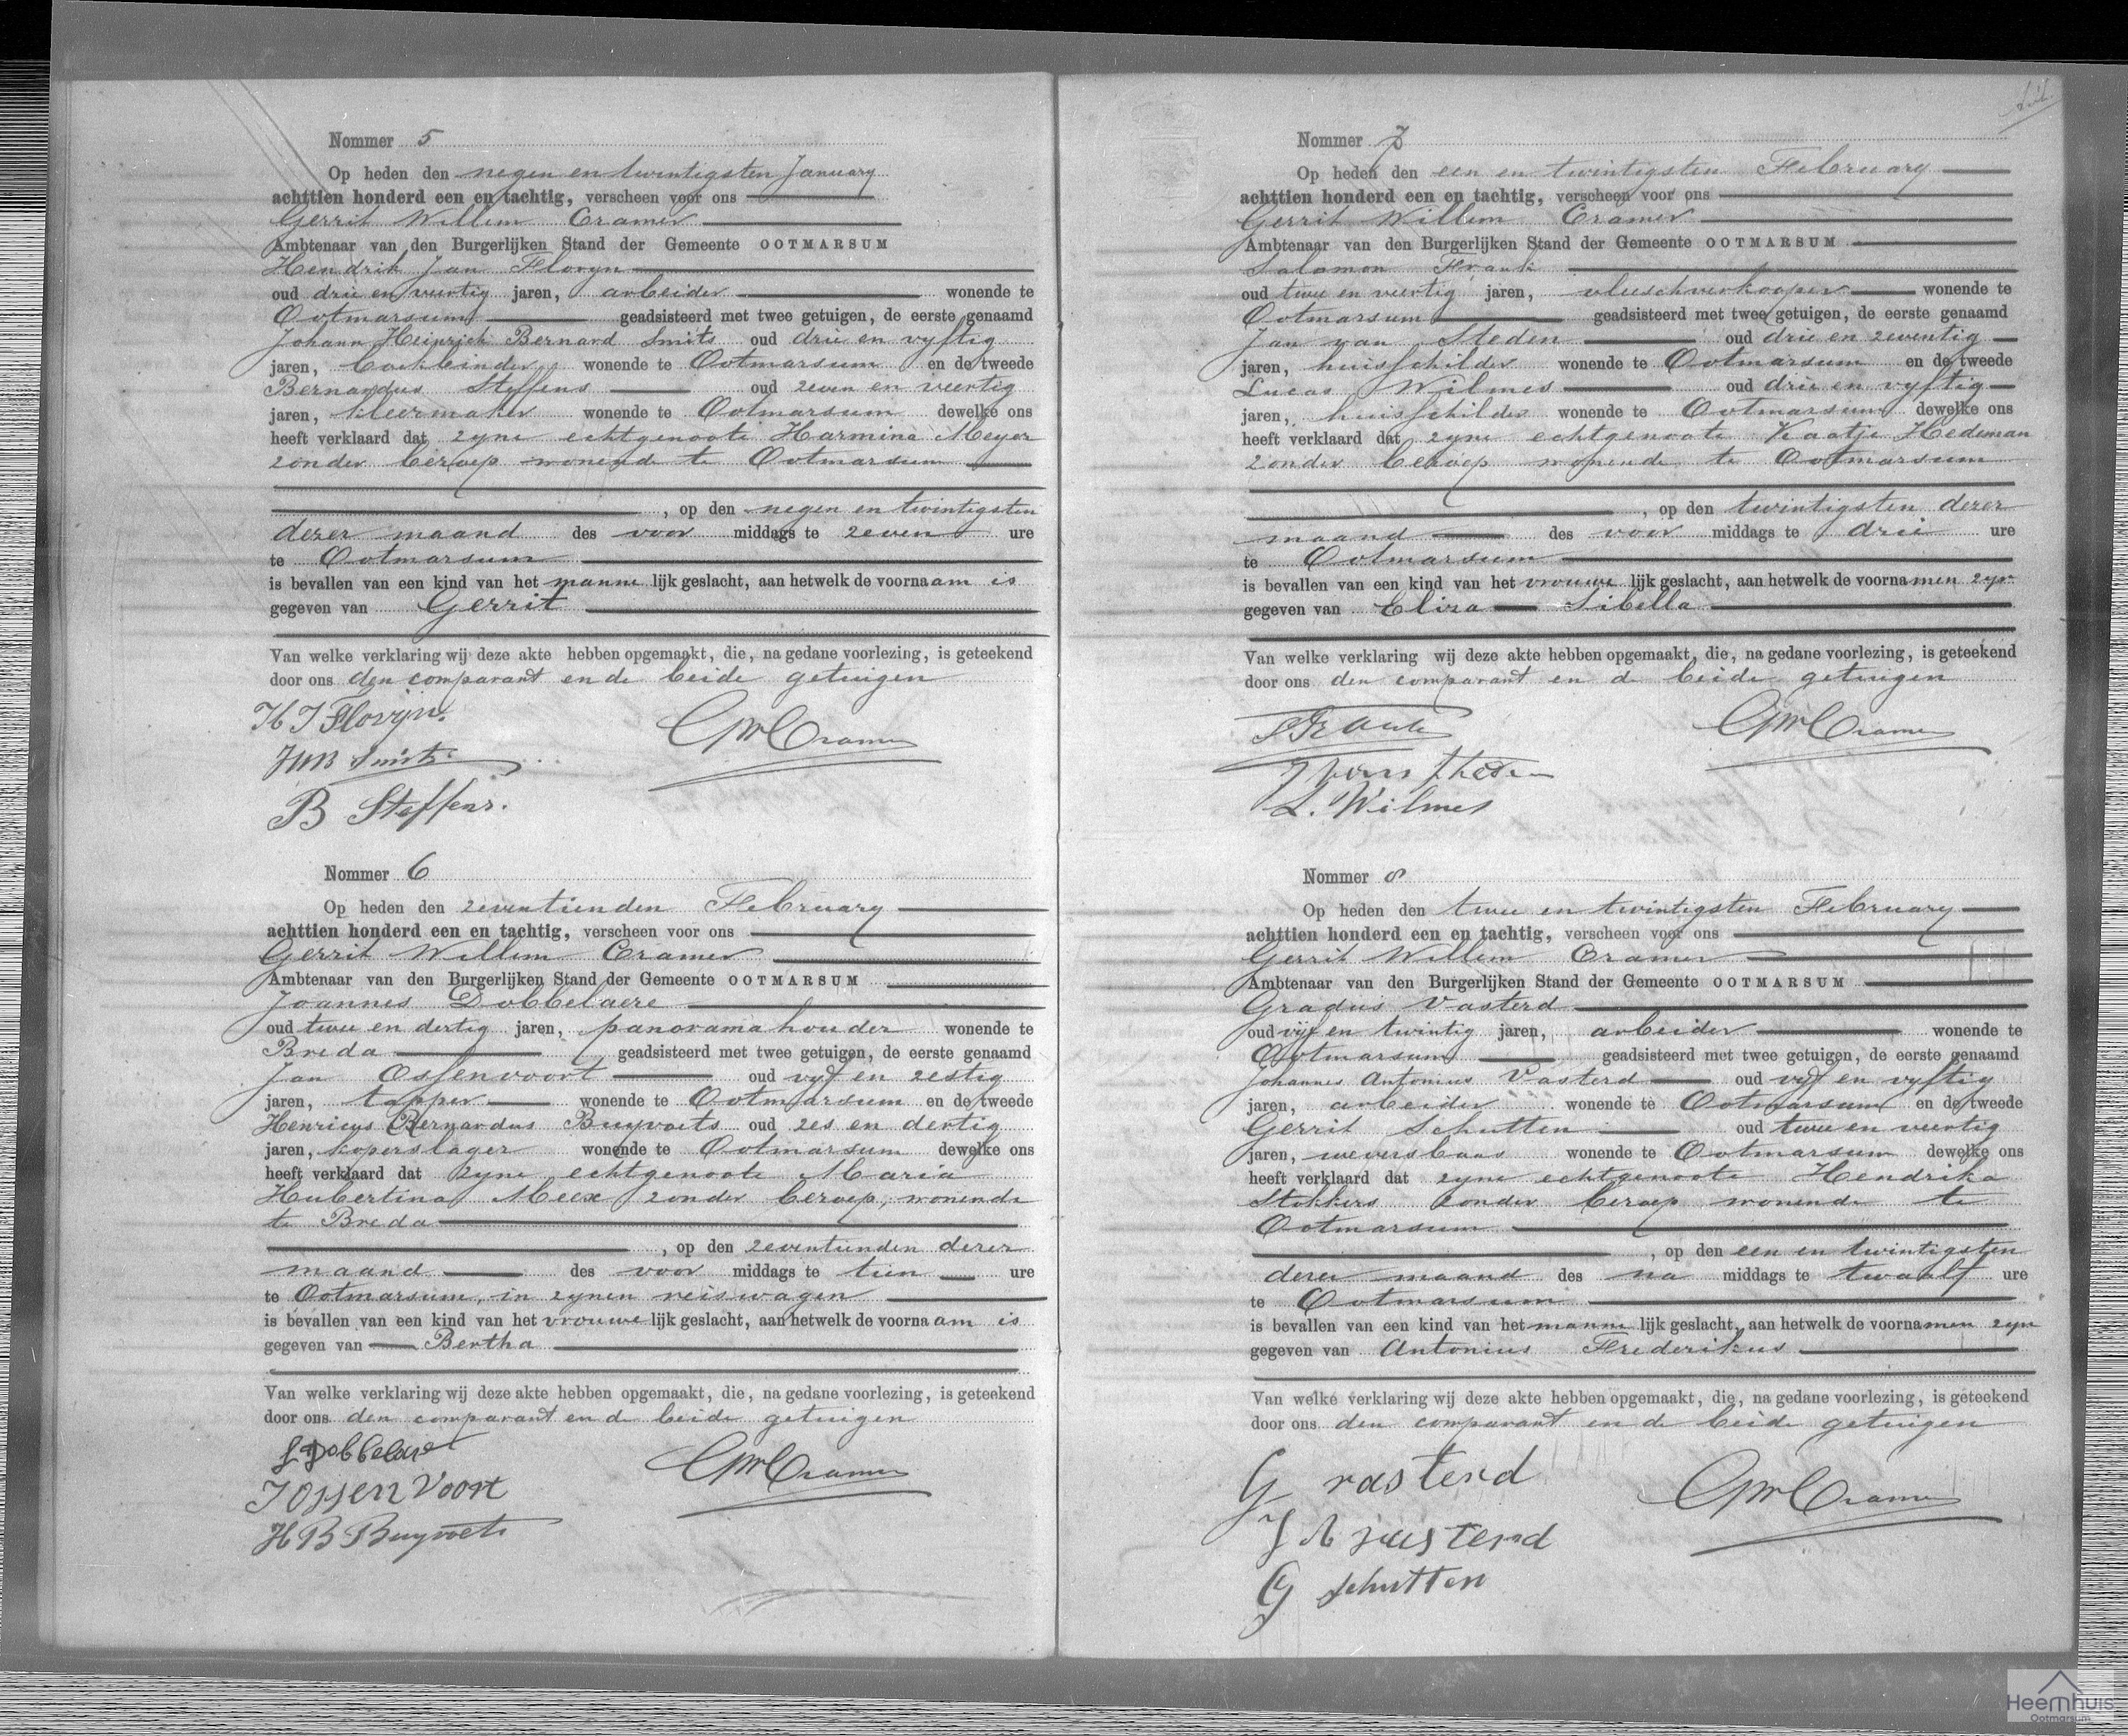 Nommer 5
Op heden den negen en twintigsten January
achttien honderd een en tachtig, verscheen voor ons
Gerrit Willem Cramer
Ambtenaar van den Burgerlijken Stand der Gemeente OOTMARSUM
Hendrik Jan Floryn
oud drie en veertig jaren, arbeider wonende te
Ootmarsum geadsisteerd met twee getuigen, de eerste genaamd
Johann Heinrich Bernard Smits oud drie en vyftig
jaren, boekbinder wonende te Ootmarsum en de tweede
Bernardus Steffens oud zeven en veertig
jaren, kleermaker wonende te Ootmarsum dewelke ons
heeft verklaard dat zyne echtgenoote Harmina Meyer
zonder beroep wonende te Ootmarsum
, op den negen en twintigsten
dezer maand des voor middags te zeven ure
te Ootmarsum
is bevallen van een kind van het manne lijk geslacht, aan hetwelk de voornaam is
gegeven van Gerrit
Van welke verklaring wij deze akte hebben opgemaakt, die, na gedane voorlezing, is geteekend
door ons den comparant en de beide getuigen
H J Floryn.
GWCramer
JHB Smits
B Steffens.
Nommer 6
Op heden den zeventienden February
achttien honderd een en tachtig, verscheen voor ons
Gerrit Willem Cramer
Ambtenaar van den Burgerlijken Stand der Gemeente OOTMARSUM
Joannes Dobbelaere
oud twee en dertig jaren, panoramahouder wonende te
Breda geadsisteerd met twee getuigen, de eerste genaamd
Jan Ossenvoort oud vyf en zestig
jaren, tapper wonende te Ootmarsum en de tweede
Henricus Bernardus Buyvoets oud zes en dertig
jaren, koperslager wonende te Ootmarsum dewelke ons
heeft verklaard dat zyne echtgenoote Maria
Hubertina Meex zonder beroep, wonende
te Breda
, op den zeventienden dezer
maand des voor middags te tien ure
te Ootmarsum, in zynen reiswagen
is bevallen van een kind van het vrouwe lijk geslacht, aan hetwelk de voornaam is
gegeven van Bertha
Van welke verklaring wij deze akte hebben opgemaakt, die, na gedane voorlezing, is geteekend
door ons den comparant en de beide getuigen
J Dobbelaere
GWCramer
J Ossenvoort
H B Buyvoets
Nommer 7
Op heden den een en twintigsten February
achttien honderd een en tachtig, verscheen voor ons
Gerrit Willem Cramer
Ambtenaar van den Burgerlijken Stand der Gemeente OOTMARSUM
Salomon Frank
oud twee en veertig jaren, vleeschverkooper wonende te
Ootmarsum geadsisteerd met twee getuigen, de eerste genaamd
Jan van Steden oud drie en zeventig
jaren, huisschilder wonende te Ootmarsum en de tweede
Lucas Wilmes oud drie en vyftig
jaren, huisschilder wonende te Ootmarsum dewelke ons
heeft verklaard dat zyne echtgenoote Kaatje Hedeman
zonder beroep wonende te Ootmarsum
, op den twintigsten dezer
maand des voor middags te drie ure
te Ootmarsum
is bevallen van een kind van het vrouwe lijk geslacht, aan hetwelk de voornamen zyn
gegeven van Eliza Sibella
Van welke verklaring wij deze akte hebben opgemaakt, die, na gedane voorlezing, is geteekend
door ons den comparant en de beide getuigen
GWCramer
L. Wilmes
Nommer 8
Op heden den twee en twintigsten February
achttien honderd een en tachtig, verscheen voor ons
Gerrit Willem Cramer
Ambtenaar van den Burgerlijken Stand der Gemeente OOTMARSUM
Gradus Vasterd
oud vijf en twintig jaren, arbeider wonende te
Ootmarsum geadsisteerd met twee getuigen, de eerste genaamd
Johannes Antonius Vasterd oud vyf en vyftig
jaren, arbeider wonende te Ootmarsum en de tweede
Gerrit Schutten oud twee en veertig
jaren, weversbaas wonende te Ootmarsum dewelke ons
heeft verklaard dat zyne echtgenoote Hendrika
Stokkers zonder beroep wonende te
Ootmarsum
, op den een en twintigsten
dezer maand des na middags te twaalf ure
te Ootmarsum
is bevallen van een kind van het manne lijk geslacht, aan hetwelk de voornamen zyn
gegeven van Antonius Frederikus
Van welke verklaring wij deze akte hebben opgemaakt, die, na gedane voorlezing, is geteekend
door ons den comparant en de beide getuigen
G vasterd
GWCramer
J A vasterd
G schutten
Heemhuis
Ootmarsum